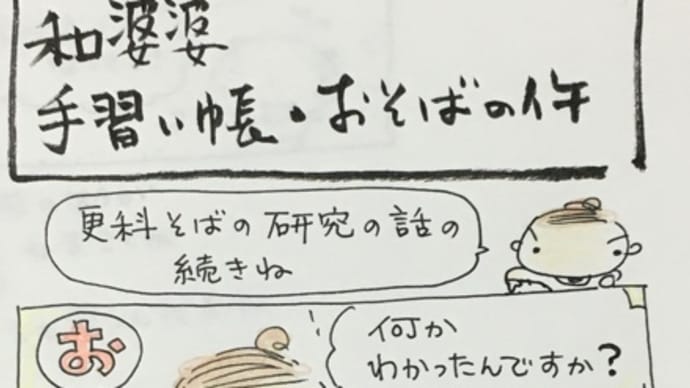 和婆婆
手習い帳・おそばの件
更科そばの研究の話の
続きね
お
何か
わかったんですか?